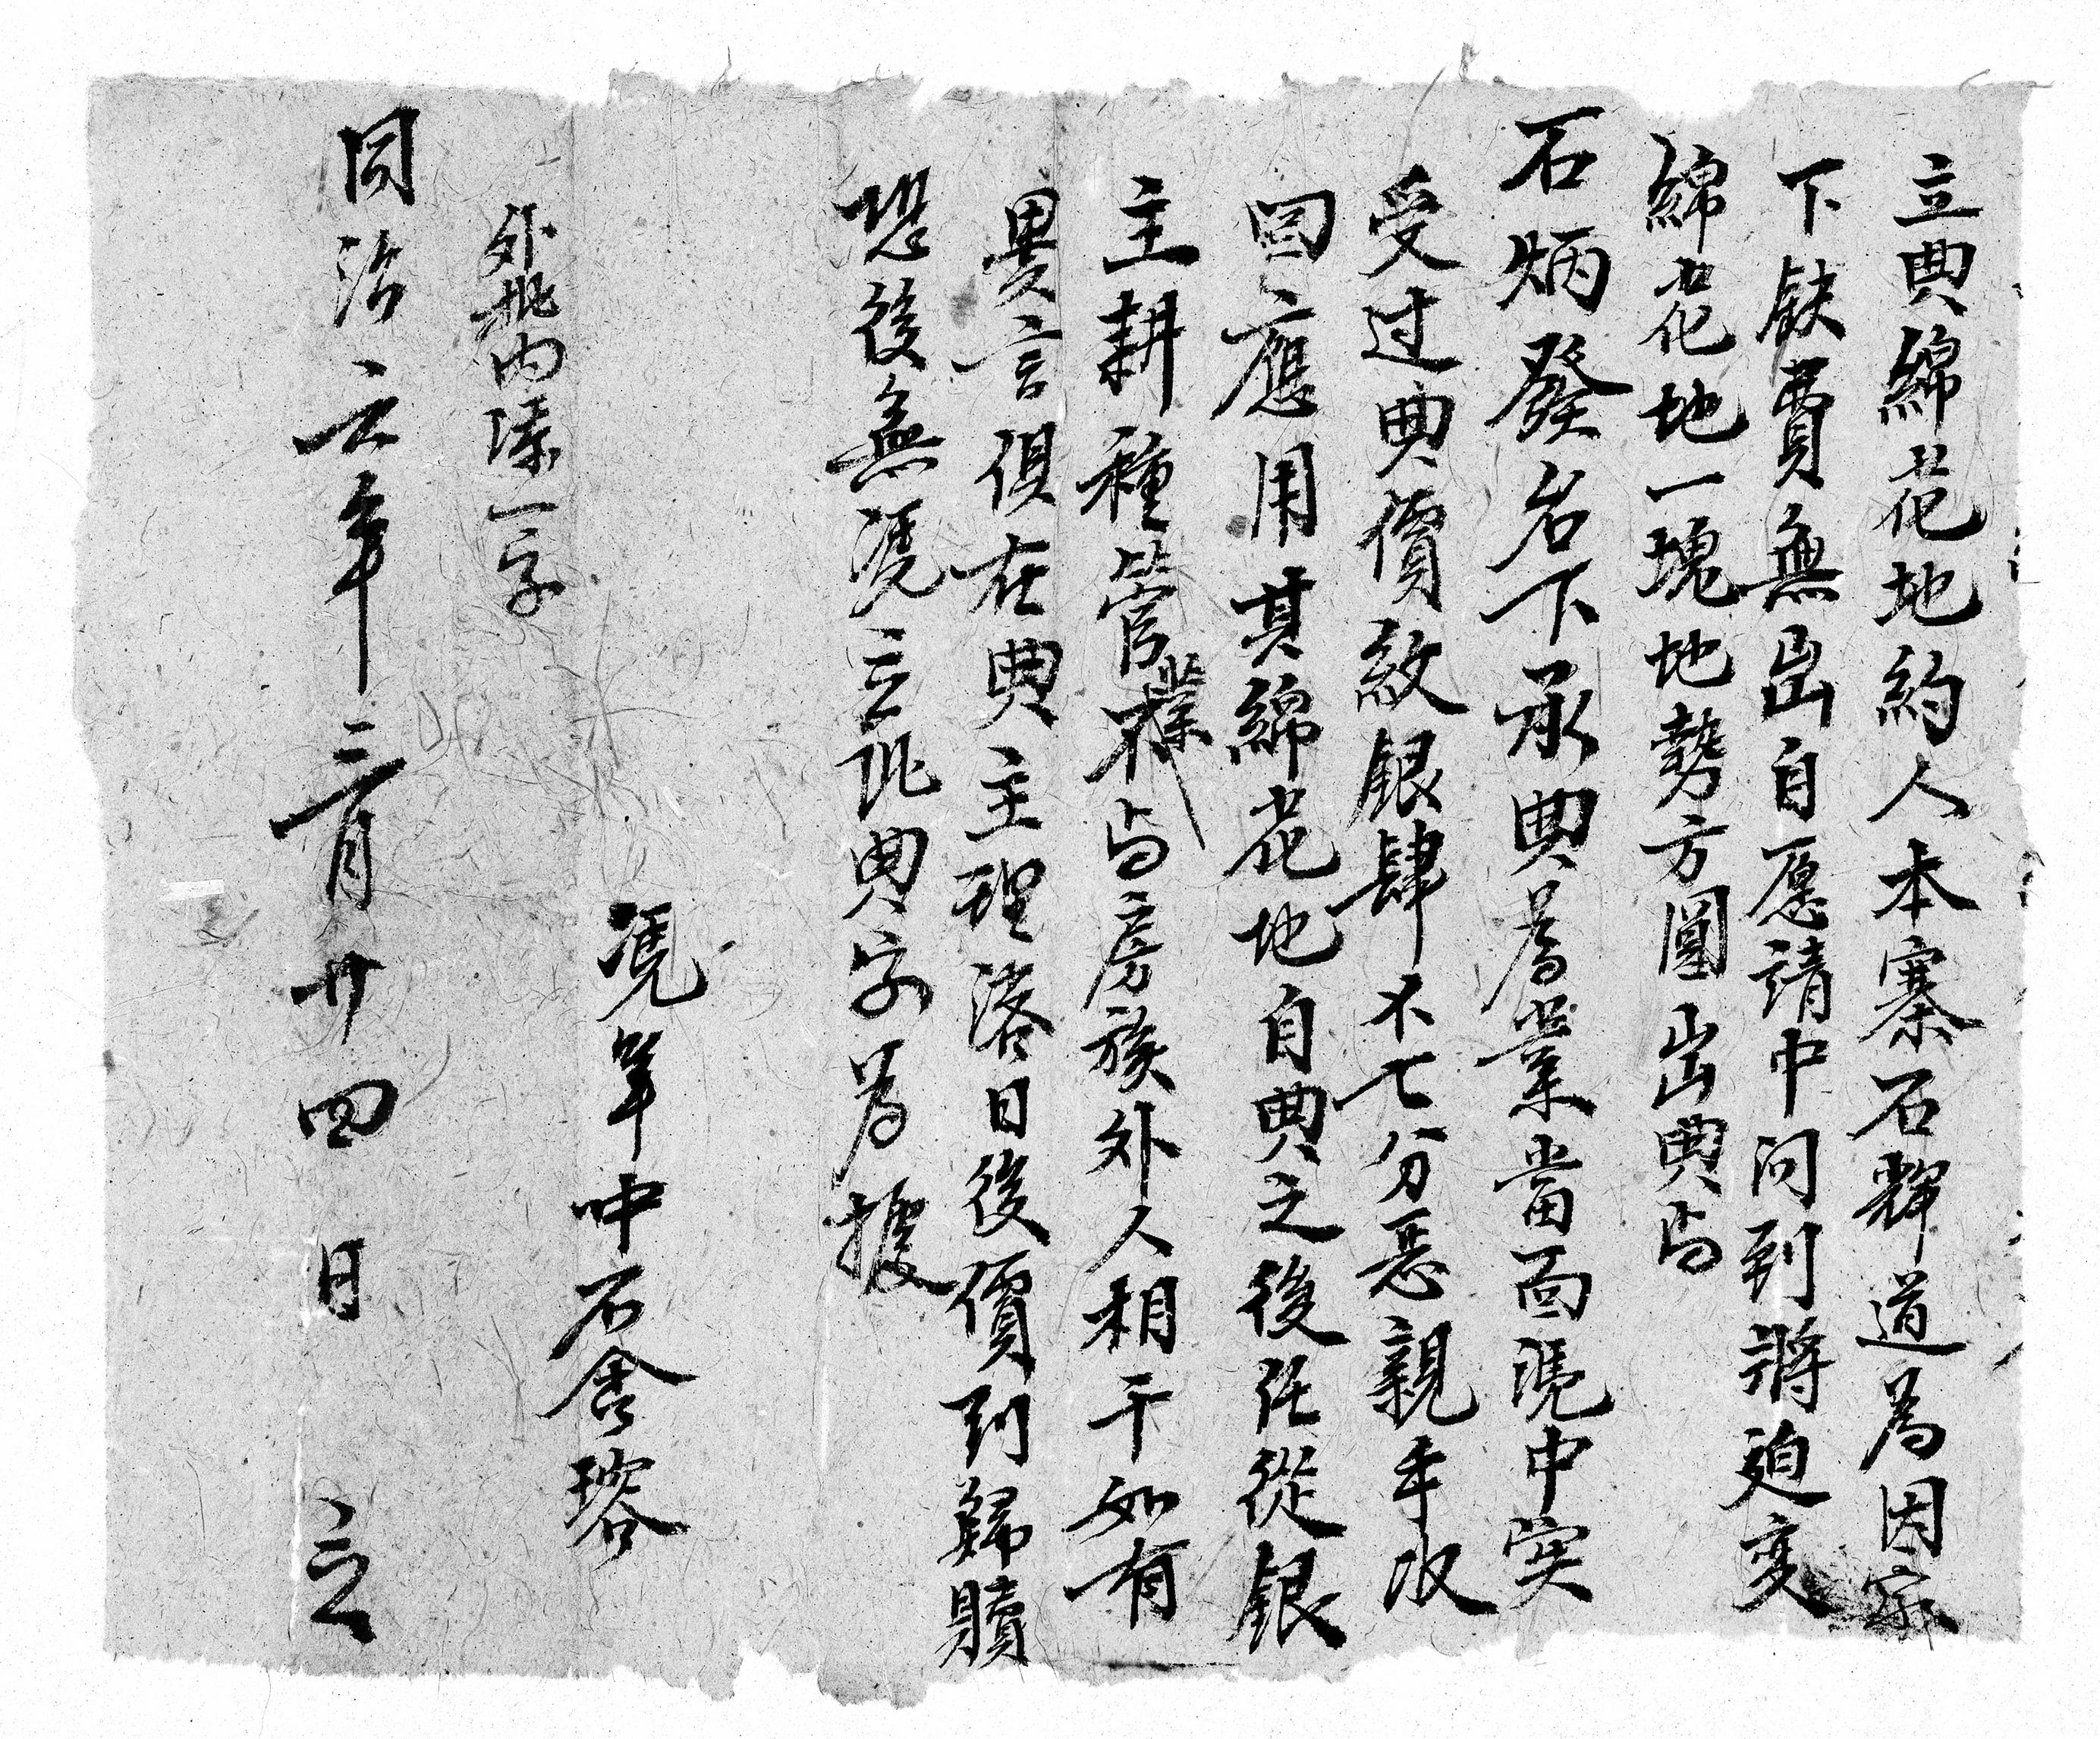 立典綿花地約人本寨石輝道為因家
下缺費無出自愿請中问到將迫变
綿花地一塊地勢方圓出典与
石炳發名下承典為業當面凴中实
受过典價紋銀肆不七分惹親手收
回應用其綿花地自典之後任從銀
主耕種管業不与房族外人相干如有
異言俱在典主理落日後價到歸贖
恐後無凴立此典字为據
凴筆中石含瑢
外批内添一字
同治六年三月廿四日立